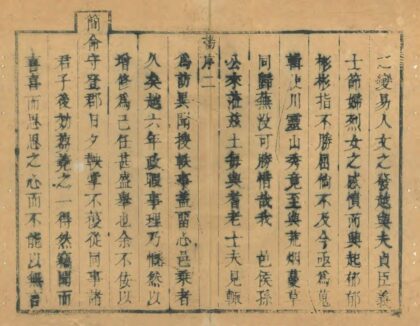 之變易人文之發越與夫貞臣義
士節婦烈女之感憤而興起郁郁
彬彬指不勝屈倘不及今亟為蒐
輯使川靈山秀竟至與荒烟蔓草
同歸蕪沒可勝惜哉我 邑侯孫
公來蒞茲土每與耆老士夫見輒
舊序二
為訪異聞搜軼事蓋留心邑乘者
久矣越六年政暇事理乃慨然以
增修為己任甚盛舉也余不佞以
簡命守登郡日夕掌不遑從同事諸
君子後之一得然竊聞而
喜喜而思思之心而不能以無言